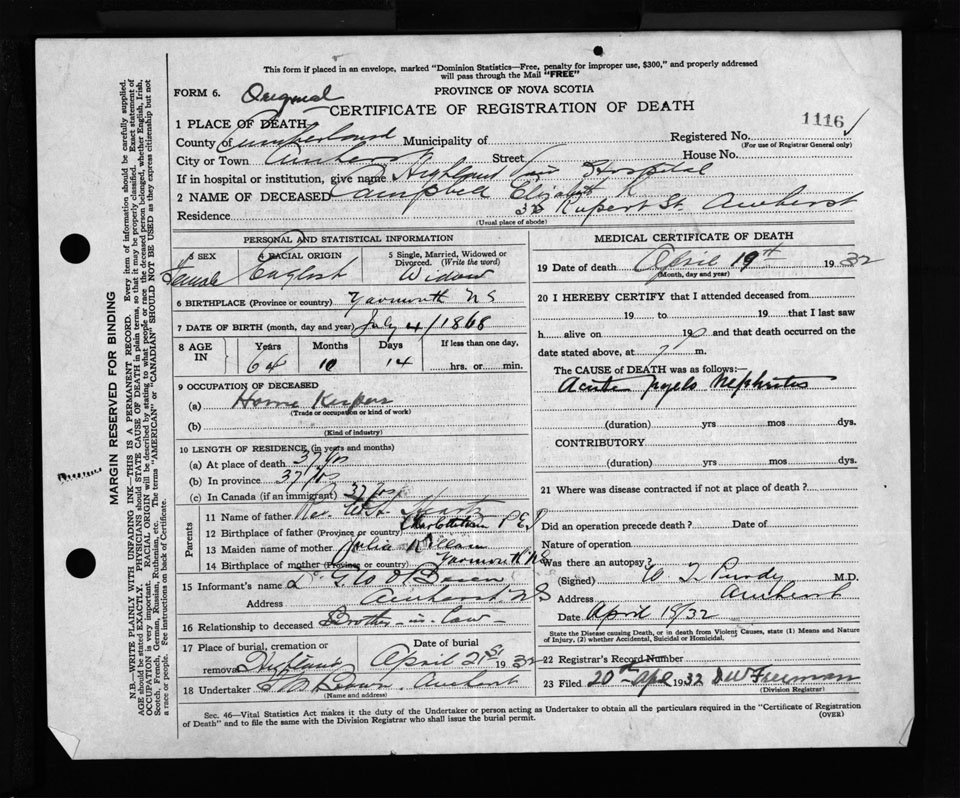 This form if placed in an envelope, marked "Dominion Statistics—Free, penalty for improper use, $300," and properly addressed
will pass through the Mail "FREE"
FORM 6. Original PROVINCE OF NOVA SCOTIA
CERTIFICATE OF REGISTRATION OF DEATH
1 PLACE OF DEATH
County of Cumberland Municipality of Registered No. 1116
(For use of Registrar General only)
City or Town Amherst Street House No.
If in hospital or institution, give name Highland View Hospital
2 NAME OF DECEASED Campbell Elizabeth
Residence Rupert St Amherst
(Usual place of abode)
PERSONAL AND STATISTICAL INFORMATION
3 SEX 4 RACIAL ORIGIN 5 Single, Married, Widowed or
Divorced. (Write the word)
Female English Widow
6 BIRTHPLACE (Province or country) Yarmouth NS
7 DATE OF BIRTH (month, day and year) July 4/1868
8 AGE IN Years Months Days If less than one day,
64 10 14 hrs. or min.
9 OCCUPATION OF DECEASED
(a) Home Keeper
(Trade or occupation or kind of work)
(b)
(Kind of industry)
10 LENGTH OF RESIDENCE (in years and months)
(a) At place of death 37 yrs
(b) In province 37 yrs
(c) In Canada (if an immigrant) 37 yrs
Parents
11 Name of father Rev. W H Heartz
12 Birthplace of father (Province or country) Charlottetown P E I
13 Maiden name of mother Julia
14 Birthplace of mother (Province or country) Yarmouth NS
15 Informant's name Dr G W
Address Amherst, NS
16 Relationship to deceased Brother-in-law
17 Place of burial, cremation or Date of burial
removal Highland April 21st 1932
18 Undertaker Amherst
(Name and address)
MEDICAL CERTIFICATE OF DEATH
19 Date of death April 19th 1932
(Month, day and year)
20 I HEREBY CERTIFY that I attended deceased from
19 to 19 that I last saw
h alive on 19 and that death occurred on
date stated above, at 7 m.
The CAUSE of DEATH was as follows:—
Acute pyelo nephritis
(duration) yrs mos dys.
CONTRIBUTORY
(duration) yrs mos dys.
21 Where was disease contracted if not at place of death?
Did an operation precede death? Date of
Nature of operation
Was there an autopsy?
(Signed) W T Purdy M.D.
Address Amherst
Date April 19/32
State the Disease causing Death, or in death from Violent Causes, state (1) Means and Nature
of Injury, (2) whether Accidental, Suicidal or Homicidal.
22 Registrar's Record Number
23 Filed 20th Apl 1932 Freeman
(Division Registrar)
Sec. 46—Vital Statistics Act makes it the duty of the Undertaker or person acting as Undertaker to obtain all the particulars required in the "Certificate of Registration
of Death" and to file the same with the Division Registrar who shall issue the burial permit. (OVER)
MARGIN RESERVED FOR BINDING
N.B.—WRITE PLAINLY WITH UNFADING INK—THIS IS A PERMANENT RECORD. Every item of information should be carefully supplied.
AGE should be stated EXACTLY. PHYSICIANS should STATE CAUSE OF DEATH in plain terms, so that it may be properly classified. Exact statement of
OCCUPATION is very important. RACIAL ORIGIN will be described by stating to what people or race the deceased person belonged, whether English, Irish,
Scotch, French, German, Russian, Ruthenian, etc. The terms "AMERICAN" or "CANADIAN" SHOULD NOT BE USED as they express citizenship but not
a race or people. Fee instructions on back of Certificate.